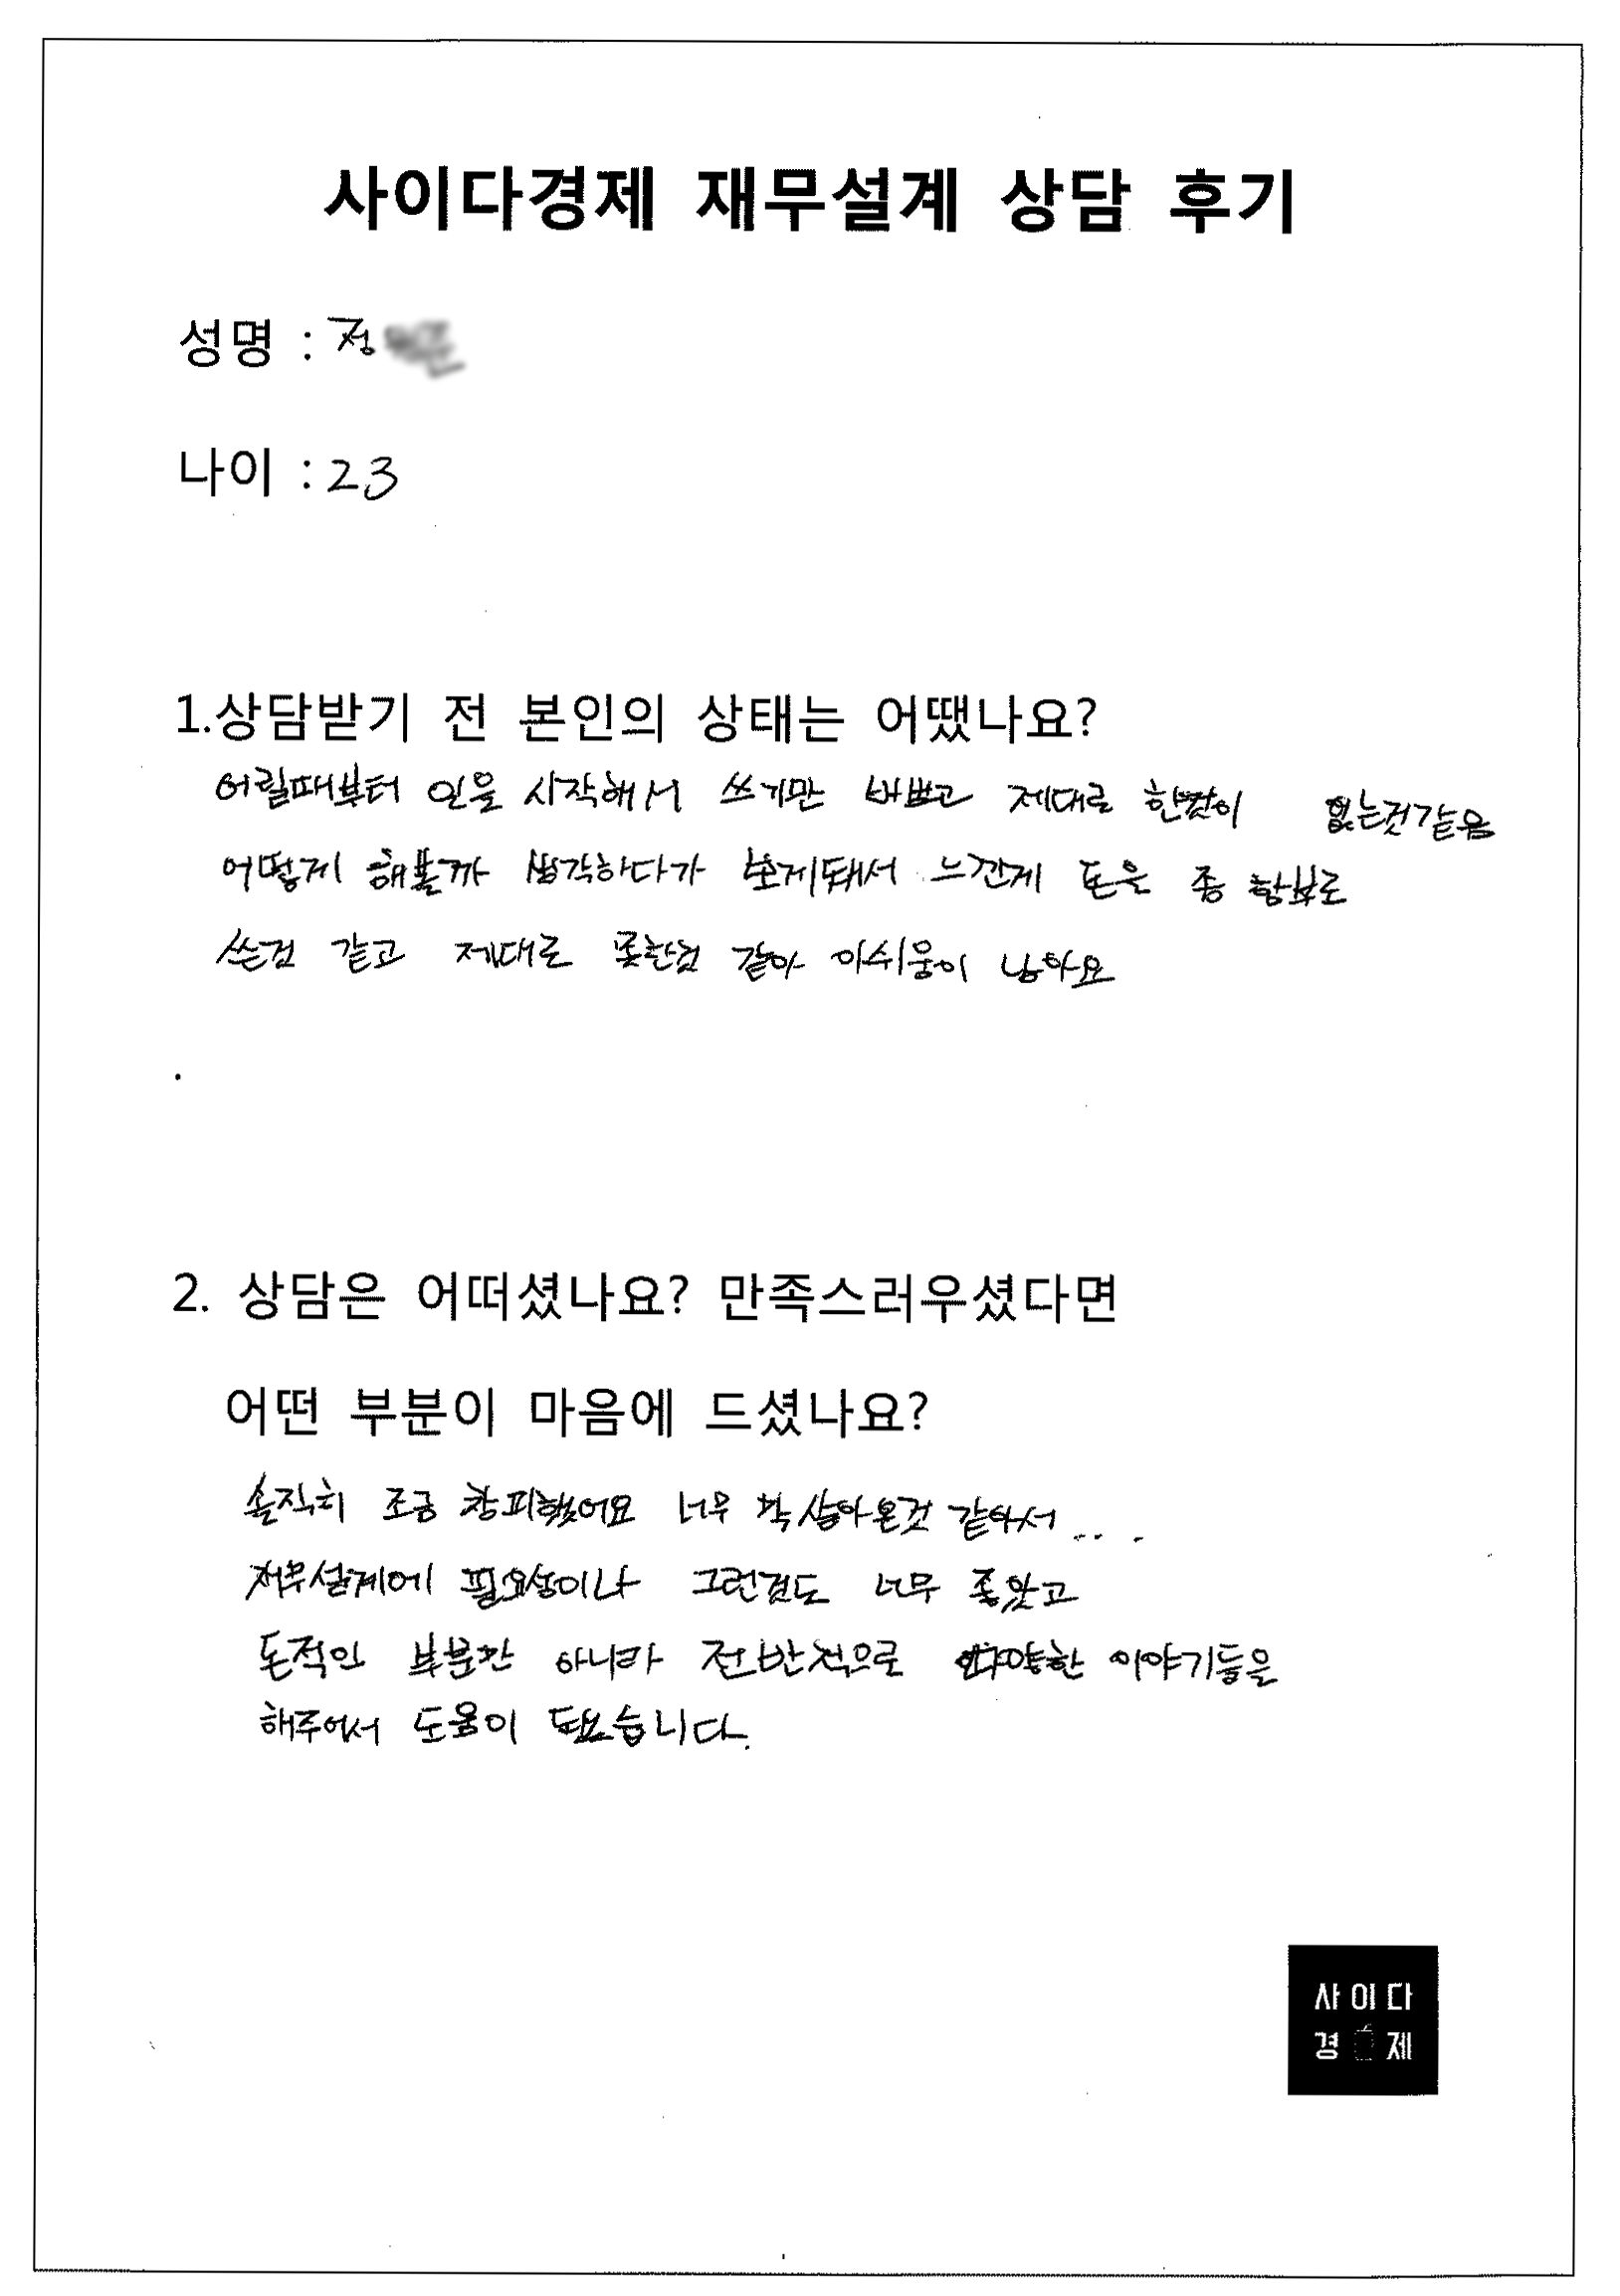 사이다경제 재무설계 상담 후기
성명 : 정
나이 : 23
1.상담받기 전 본인의 상태는 어땠나요?
어릴때부터 일을 시작해서 쓰기만 바쁘고 제대로 한것이 없는것같음
어떻게 해볼까 생각하다가 보게돼서 느낀게 돈을 좀 함부로
쓴것 같고 제대로 못한것 같아 아쉬움이 남아요
2. 상담은 어떠셨나요? 만족스러우셨다면
어떤 부분이 마음에 드셨나요?
솔직히 조금 창피했어요 너무 막 살아온것 같아서....
재무설계에 필요성이나 그런걸도 너무 좋았고
돈적인 부분만 아니라 전반적으로 다양한 이야기들을
해주어서 도움이 되었습니다.
사이다
경제